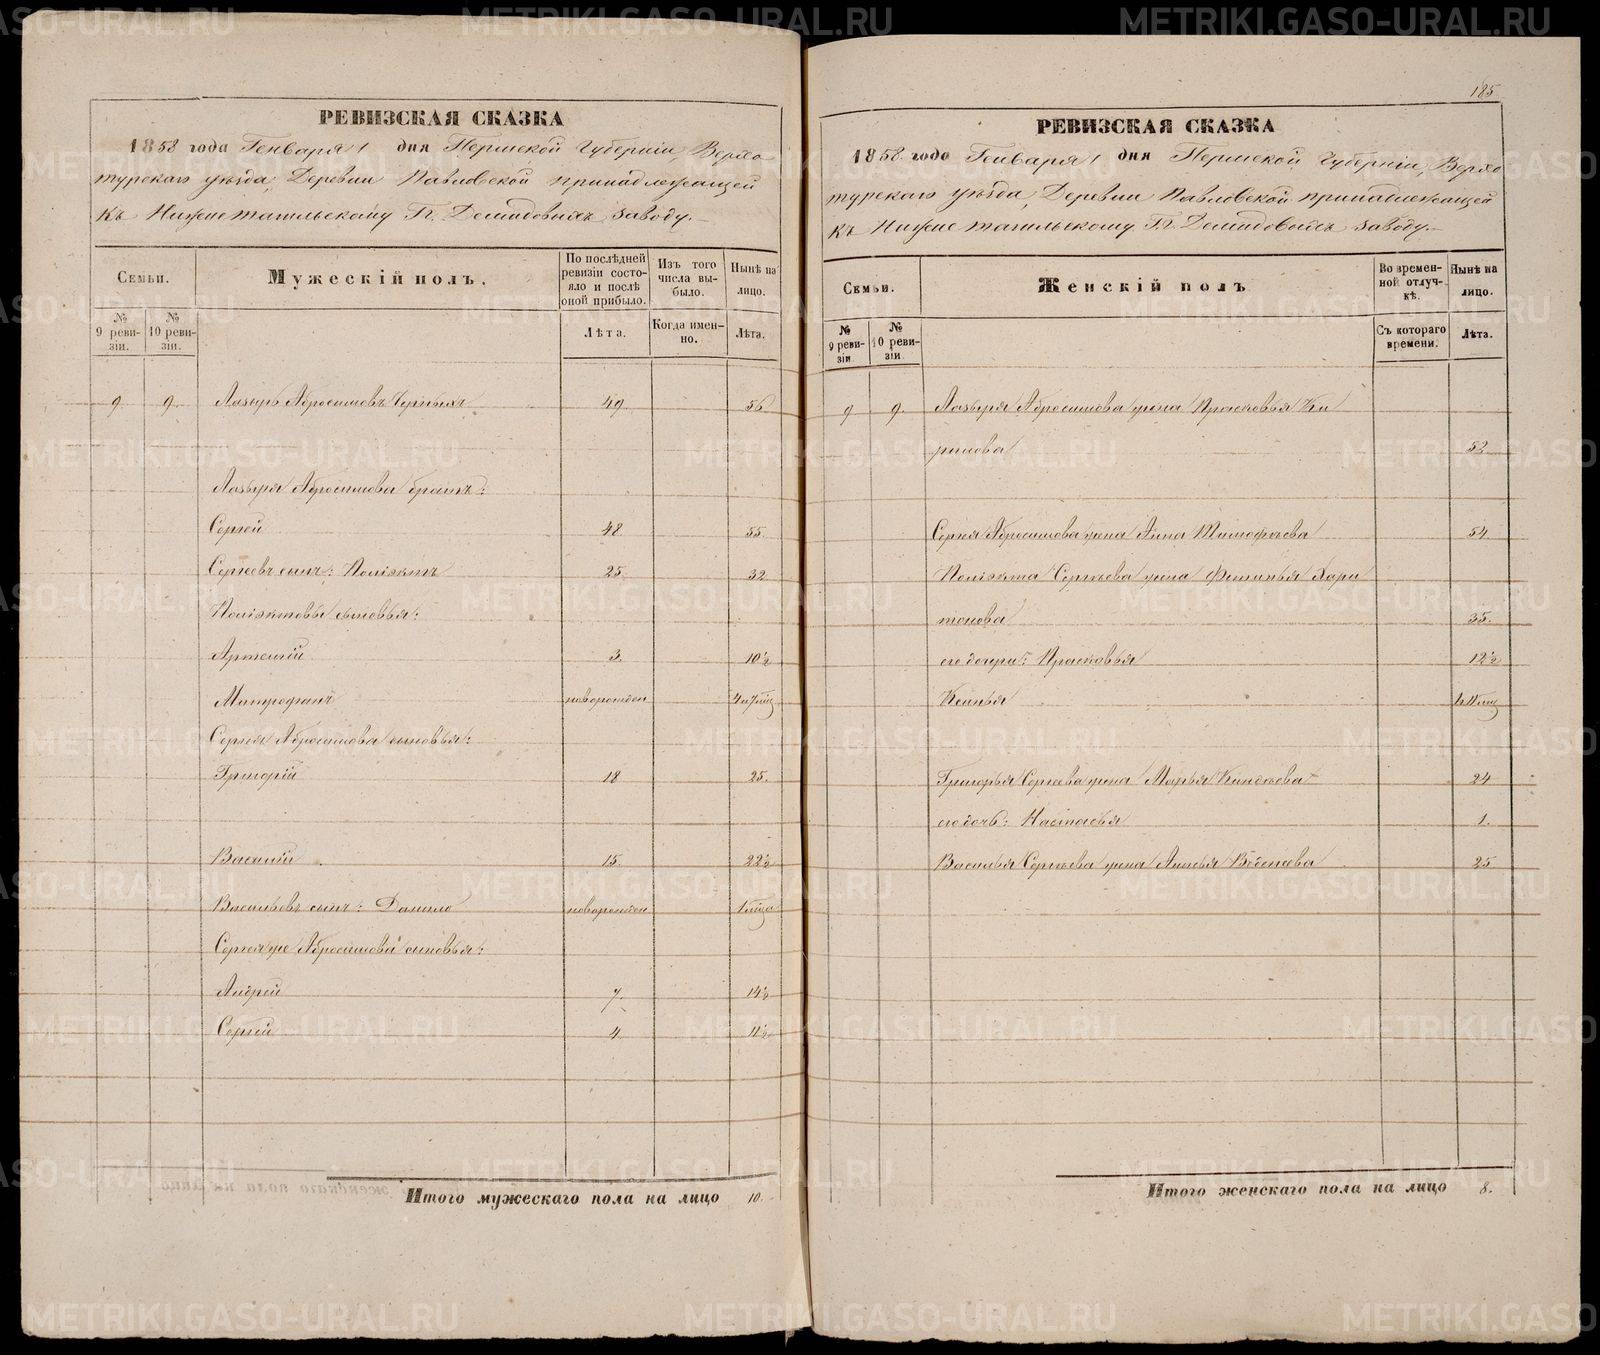 185
РЕВИЗСКАЯ СКАЗКА
1858 года Генваря 1 дня Пермской Губерніи, Верхо
турскаго уѣзда, Деревни Павловской принадлежащей
къ Нижнетагильскому Гг. Демидовыхъ заводу.
Семьи.
Мужескій полъ.
По послѣдней ревизіи состояло и послѣ оной прибыло.
Изъ того числа выбыло.
Нынѣ на лицо.
№ 9 ревизіи.
№ 10 ревизіи.
Лѣта.
Когда именно.
Лѣта.
9 9. Лазырь Абросимовъ Черныхъ 49 56
Лазыря Абросимова братъ:
Сергей 48 55
Сергеевъ сынъ: Поліэктъ 25 32
Поліэктовы сыновья:
Артемій 3. 10½
Митрофанъ новорожден
Сергея Абросимова сыновья:
Григорій 18 25.
Василій 15. 22½
Васильевъ сынъ: Данило новорожден
Сергея же Абросимова сыновья:
Андрей 7. 14½
Сергей 4 11½
Итого мужескаго пола на лицо 10.
РЕВИЗСКАЯ СКАЗКА
1858 года Генваря 1 дня Пермской Губерніи, Верхо
турскаго уѣзда, Деревни Павловской принадлежащей
къ Нижнетагильскому Гг. Демидовыхъ заводу.
Семьи.
Женскій полъ
Во временной отлучкѣ.
Нынѣ на лицо.
№ 9 ревизіи
№ 10 ревизіи.
Съ котораго времени.
Лѣта.
9 9. Лазыря Абросимова жена Прасковья Ки
рилова 52
Сергея Абросимова жена Анна Тимофеева 54
Поліэкта Сергѣева жена Фетинья Хари
тонова 35.
его дочери: Прасковья 12½
Ксинья
Григорья Сергеева жена Марья 24
его дочь: Настасья 1.
Василья Сергѣева жена 25
Итого женскаго пола на лицо 8.
METRIKI.GASO-URAL.RU